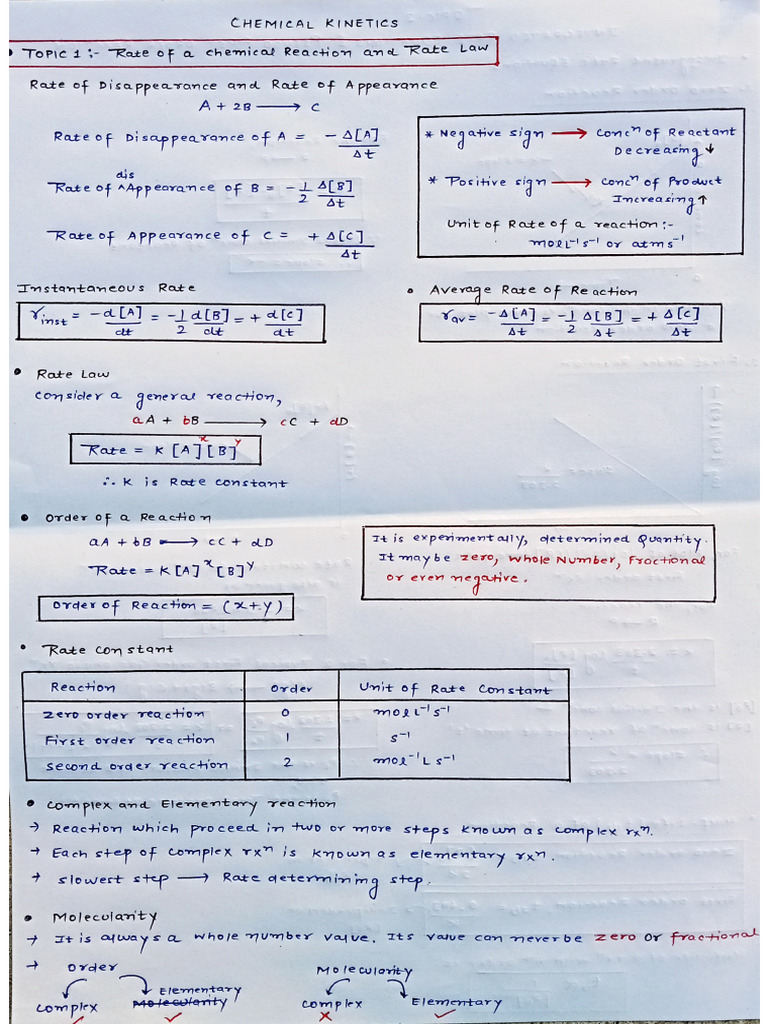 CHEMICAL KINETICS
• TOPIC 1 :- Rate of a chemical Reaction and Rate Law
Rate of Disappearance and Rate of Appearance
A + 2B ⟶ C
Rate of Disappearance of A = - Δ[A]/Δt
Rate of ^dis Appearance of B = - 1/2 Δ[B]/Δt
Rate of Appearance of C = + Δ[C]/Δt
* Negative sign ⟶ concⁿ of Reactant
Decreasing ↓
* Positive sign ⟶ concⁿ of Product
Increasing ↑
Unit of Rate of a reaction :-
mol L⁻¹ s⁻¹ or atm s⁻¹
Instantaneous Rate
r inst = -d[A]/dt = -1/2 d[B]/dt = + d[C]/dt
• Average Rate of Reaction
r av = -Δ[A]/Δt = -1/2 Δ[B]/Δt = + Δ[C]/Δt
• Rate Law
Consider a general reaction,
aA + bB ⟶ cC + dD
Rate = K [A]ˣ [B]ʸ
∴ K is Rate constant
• Order of a Reaction
aA + bB ⟶ cC + dD
Rate = K [A]ˣ [B]ʸ
Order of Reaction = (x+y)
It is experimentally, determined Quantity.
It maybe zero, whole Number, Fractional
or even negative.
• Rate constant
Reaction Order Unit of Rate Constant
Zero order reaction 0 mol L⁻¹ s⁻¹
First order reaction 1 s⁻¹
Second order reaction 2 mol⁻¹ L s⁻¹
• Complex and Elementary reaction
→ Reaction which proceed in two or more steps known as complex rxⁿ.
→ Each step of complex rxⁿ is known as elementary rxⁿ.
→ slowest step ⟶ Rate determining step.
• Molecularity
→ It is always a whole number value. Its value can never be zero or fractional
→ Order
Complex ✓
Elementary
Molecularity ✓
Molecularity
Complex ✗
Elementary ✓